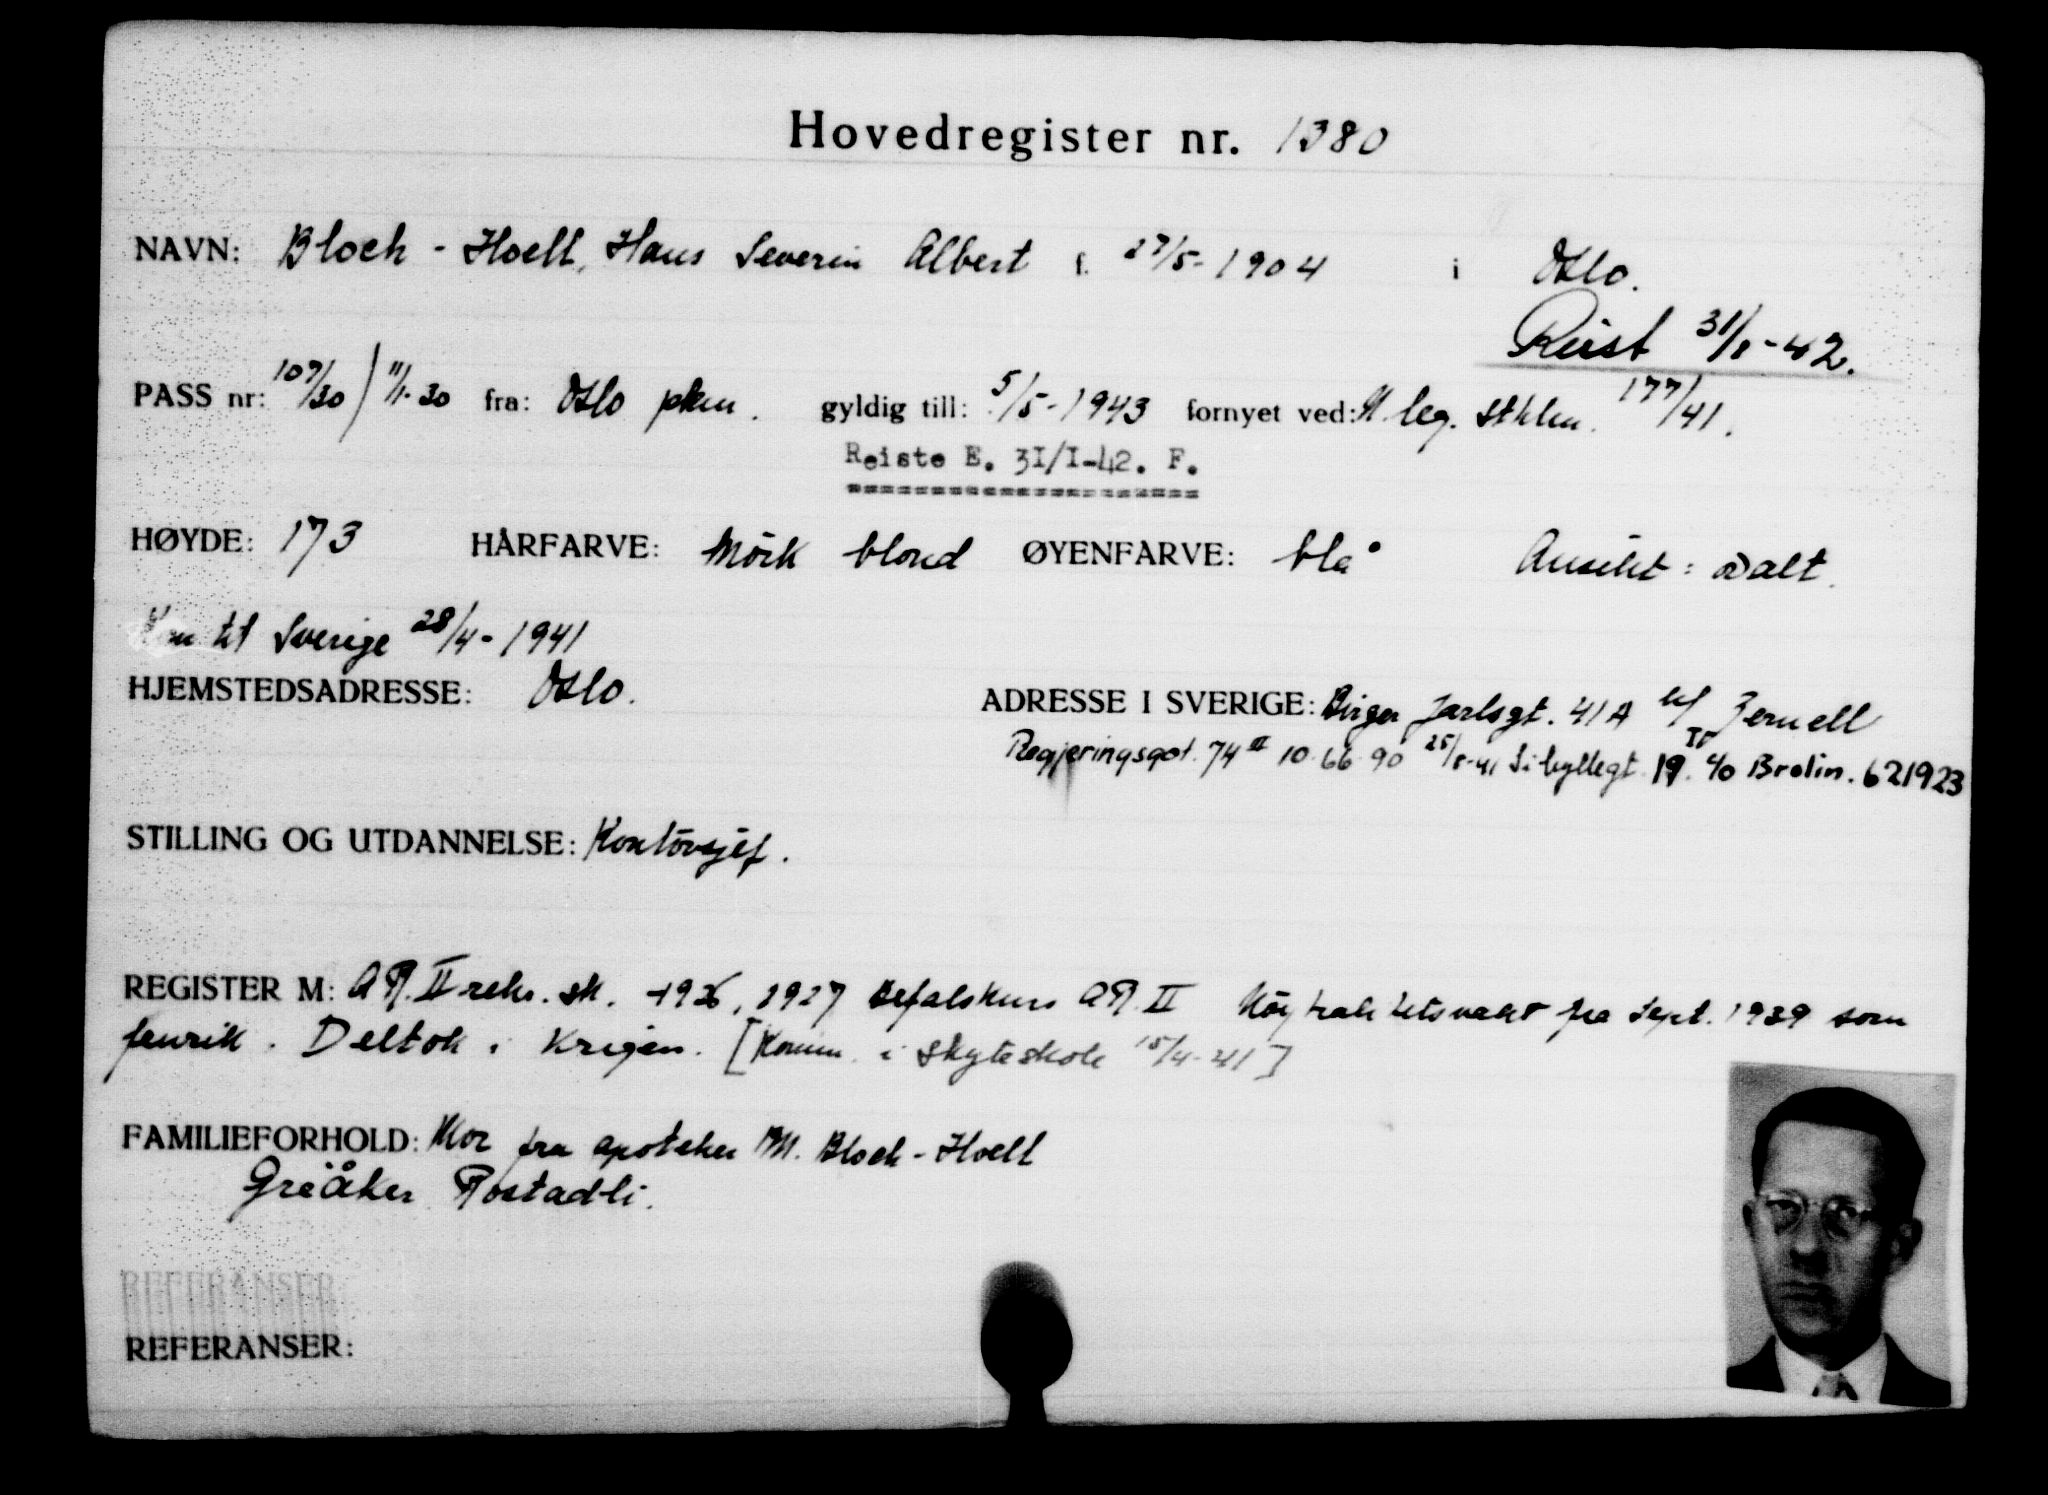 Hovedregister nr. 1380
NAVN: Bloch - Hoell, Hans Severin Albert f. 27/5-1904 i Oslo.
Reist 31/1-42.
PASS nr: 107/30 / 11/1-30 fra: Oslo pkm. gyldig till: 5/5-1943 fornyet ved: N. leg. Sthlm. 177/41.
Reiste E. 31/I-42. F.
HØYDE: 173 HÅRFARVE: Mörk blond ØYENFARVE: blå Ansikt: ovalt.
Kom til Sverige 28/4-1941
HJEMSTEDSADRESSE: Oslo. ADRESSE I SVERIGE: Birger Jarlsgt. 41A
Regjeringsgat. 74 III 10.66.90 25/8-41 Sibyllegt. 19. IV c/o Brolin. 621923
STILLING OG UTDANNELSE: Kontorsjef.
REGISTER M: AR. II rekr. sk. 1926, 1927 Befalskurs AR. II Nöytralitetsvakt fra Sept. 1939 som
fenrik. Deltok i Krigen. [Komm. i Skyteskole 15/4-41]
FAMILIEFORHOLD: Mor fru apoteker M. Bloch-Hoell
Greåker
REFERANSER
REFERANSER: